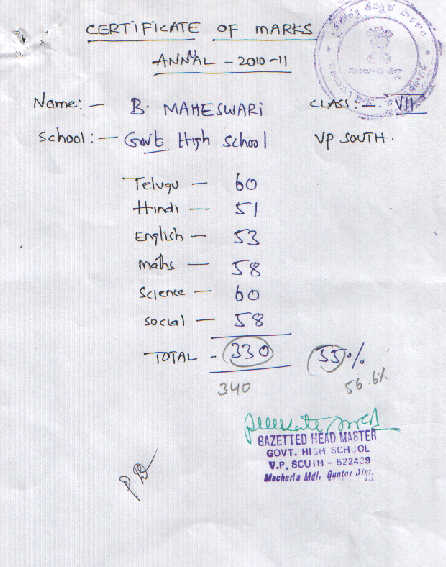 CERTIFICATE OF MARKS
ANNAL - 2010-11
Name: - B. MAHESWARI CLASS: - VII
School: - Govt High School VP SOUTH.
Telugu - 60
Hindi - 51
English - 53
maths - 58
Science - 60
social - 58
TOTAL - 330 55%
340 56.6%
GAZETTED HEAD MASTER
GOVT. HIGH SCHOOL
V.P. SOUTH - 522439
Macherla Mdl, Guntur Dist.